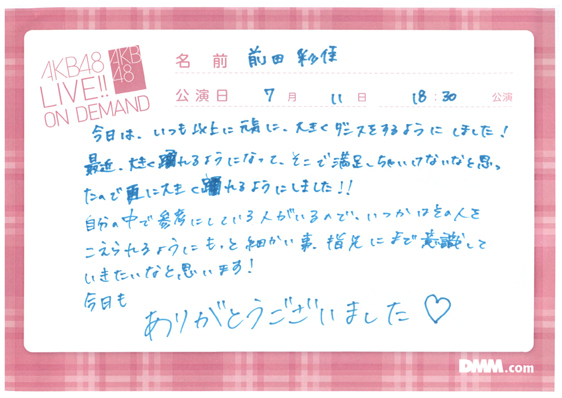 AKB48
LIVE!!
ON DEMAND
AKB
48
名前 前田彩佳
公演日 7月 11日 18:30 公演
今日は、いつも以上に元気に、大きくダンスをするようにしました！
最近、大きく踊れるようになって、そこで満足しちゃいけないなと思っ
たので更に大きく踊れるようにしました！！
自分の中で参考にしている人がいるので、いつかはその人を
こえられるようにもっと細かい事、指先にまで意識して
いきたいなと思います！
今日も
ありがとうございました♡
DMM.com